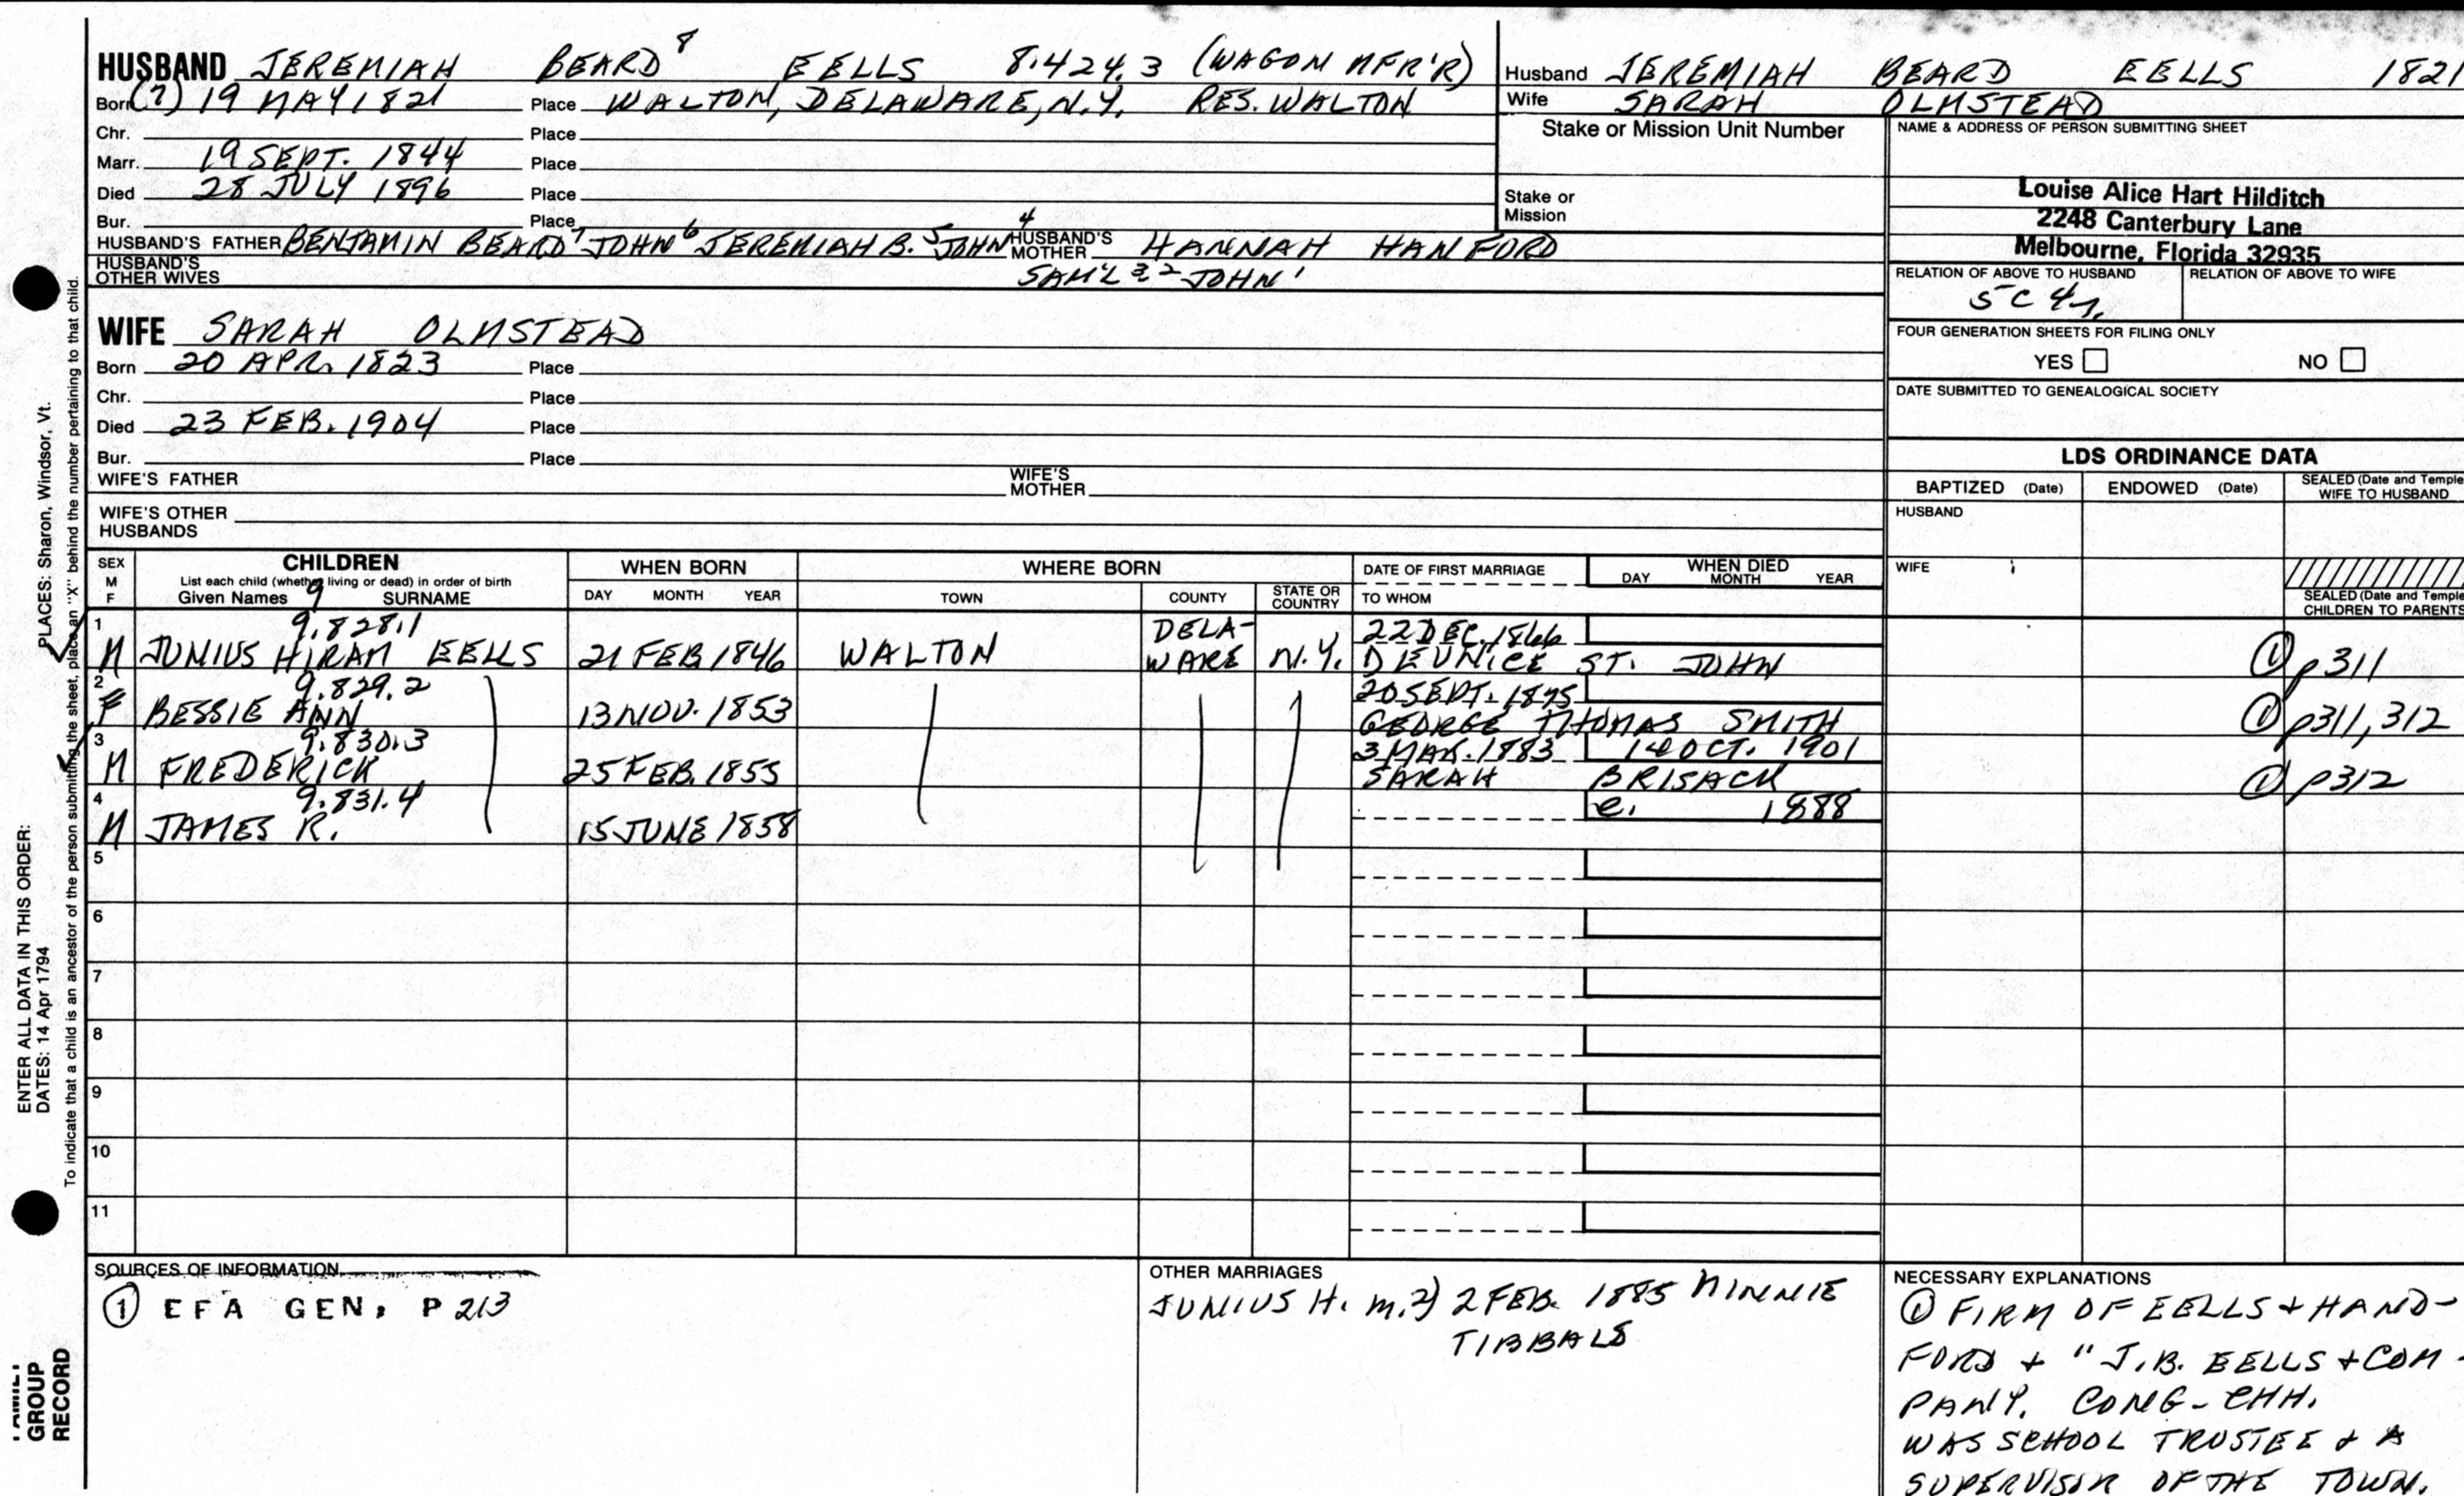 HUSBAND JEREMIAH BEARD⁸ EELLS 8.424.3 (WAGON MFR'R)
Born (?) 19 MAY 1821 Place WALTON, DELAWARE, N.Y. RES. WALTON
Chr. Place
Marr. 19 SEPT. 1844 Place
Died 28 JULY 1896 Place
Bur. Place
HUSBAND'S FATHER BENJAMIN BEARD⁷ JOHN⁶ JEREMIAH B.⁵ JOHN⁴ HUSBAND'S MOTHER HANNAH HANFORD
HUSBAND'S OTHER WIVES SAM'L 3,2 JOHN¹
Husband JEREMIAH BEARD EELLS 1821
Wife SARAH OLMSTEAD
Stake or Mission Unit Number
Stake or Mission
NAME & ADDRESS OF PERSON SUBMITTING SHEET
Louise Alice Hart Hilditch
2248 Canterbury Lane
Melbourne, Florida 32935
RELATION OF ABOVE TO HUSBAND RELATION OF ABOVE TO WIFE
5C 4r.
FOUR GENERATION SHEETS FOR FILING ONLY
YES NO
DATE SUBMITTED TO GENEALOGICAL SOCIETY
WIFE SARAH OLMSTEAD
Born 20 APR. 1823 Place
Chr. Place
Died 23 FEB. 1904 Place
Bur. Place
WIFE'S FATHER WIFE'S MOTHER
WIFE'S OTHER HUSBANDS
LDS ORDINANCE DATA
BAPTIZED (Date) ENDOWED (Date) SEALED (Date and Temple) WIFE TO HUSBAND
HUSBAND
WIFE
SEALED (Date and Temple) CHILDREN TO PARENTS
SEX M F CHILDREN List each child (whether living or dead) in order of birth Given Names 9 SURNAME
WHEN BORN DAY MONTH YEAR
WHERE BORN TOWN COUNTY STATE OR COUNTRY
DATE OF FIRST MARRIAGE TO WHOM
WHEN DIED DAY MONTH YEAR
1 9.828.1 DELA- 22 DEC. 1866
M JUNIUS HIRAM EELLS 21 FEB 1846 WALTON WARE N.Y. D EUNICE ST. JOHN ① p311
2 9.829.2 20 SEPT. 1875
F BESSIE ANN 13 NOV. 1853 GEORGE THOMAS SMITH ① p311, 312
3 9.830.3 3 MAR. 1883 14 OCT. 1901
M FREDERICK 25 FEB. 1855 SARAH BRISACK ① p312
4 9.831.4 c. 1888
M JAMES R. 15 JUNE 1858
5
6
7
8
9
10
11
SOURCES OF INFORMATION
① EFA GEN, P 213
OTHER MARRIAGES
JUNIUS H. m. 2) 2 FEB. 1885 MINNIE
TIBBALS
NECESSARY EXPLANATIONS
① FIRM OF EELLS + HAND-
FORD + "J.B. EELLS + COM-
PANY. CONG- CHH.
WAS SCHOOL TRUSTEE + A
SUPERVISOR OF THE TOWN.
ENTER ALL DATA IN THIS ORDER:
DATES: 14 Apr 1794 PLACES: Sharon, Windsor, Vt.
To indicate that a child is an ancestor of the person submitting the sheet, place an "X" behind the number pertaining to that child.
FAMILY
GROUP
RECORD